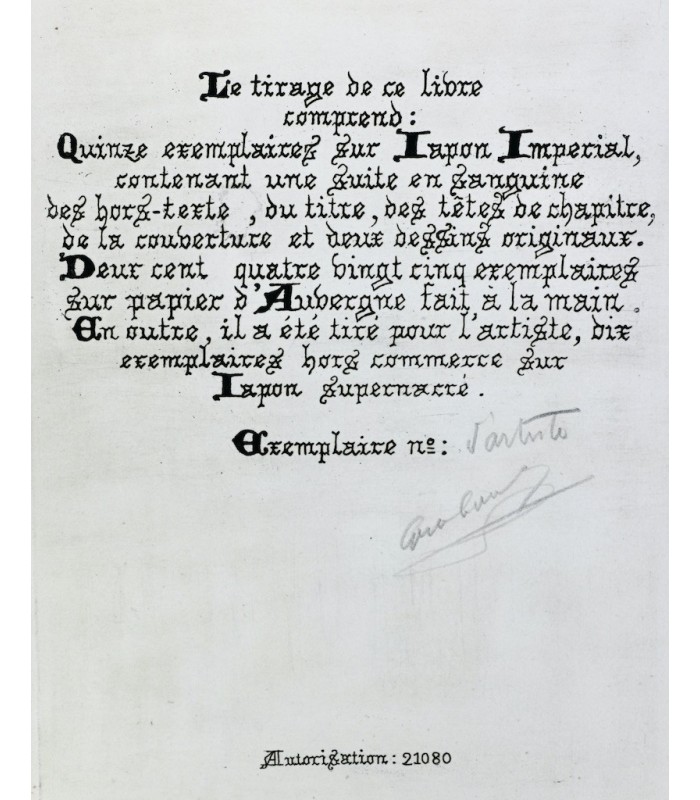 Le tirage de ce livre
comprend :
Quinze exemplaires sur Iapon Imperial,
contenant une suite en sanguine
des hors-texte , du titre, des têtes de chapitre,
de la couverture et deux dessins originaux.
Deux cent quatre vingt cinq exemplaires
sur papier d'Auvergne fait à la main .
En outre, il a été tiré pour l'artiste, dix
exemplaires hors commerce sur
Iapon supernacré .
Exemplaire nº: d'artiste
Autorisation : 21080